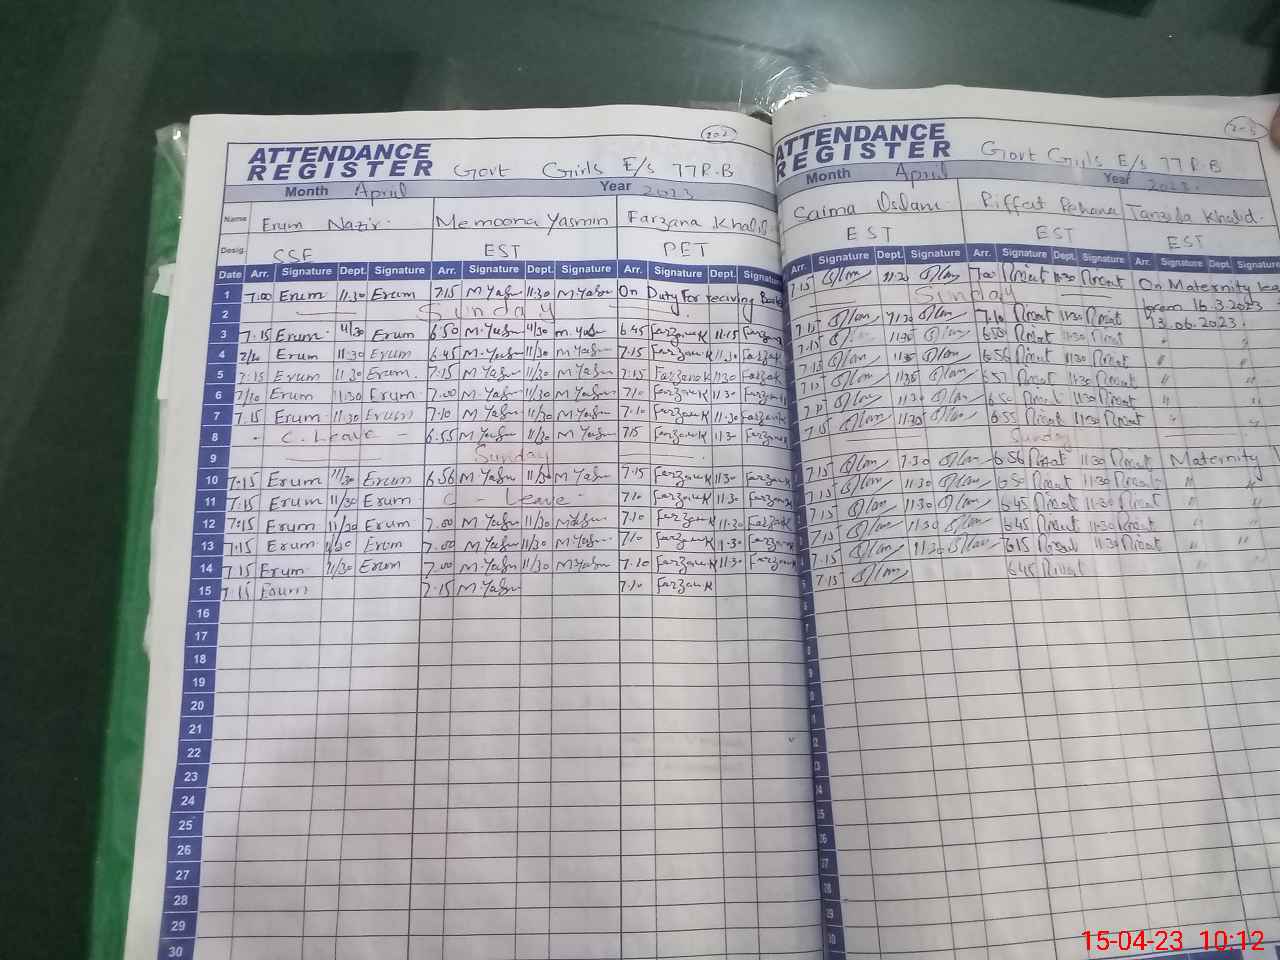 202
ATTENDANCE
REGISTER Govt Girls E/s 77R.B
Month April Year 2023
Name Erum Nazir Memoona Yasmin Farzana Khalid
Desig. SSE EST PET
Date Arr. Signature Dept. Signature Arr. Signature Dept. Signature Arr. Signature Dept. Signature
1 7:00 Erum 11.30 Erum 7.15 M.Yasm 11:30 M Yasm On Duty For
2 Sunday
3 7.15 Erum 11/30 Erum 6.50 M.Yasm 11/30 M.Yasm 6.45 FarzanaK 11.15
4 7/10 Erum 11.30 Erum 6.45 M.Yasm 11/30 M Yasm 7.15 FarzanaK 11.30
5 7:15 Erum 11.30 Erum 7.15 M Yasm 11/30 M Yasm 7.15 FarzanaK 11.30
6 7/10 Erum 11.30 Erum 7.00 M Yasm 11/30 M Yasm 7/10 FarzanaK 11.30
7 7.15 Erum 11.30 Erum 7/10 M Yasm 11/30 M Yasm 7.10 FarzanaK 11.30
8 C. Leave 6.55 M Yasm 11/30 M Yasm 7.15 FarzanaK
9 Sunday
10 7.15 Erum 11/30 Erum 6.56 M Yasm 11/30 M Yasm 7.15 FarzanaK 11.30
11 7.15 Erum 11/30 Erum C - Leave 7.10 FarzanaK 11.30
12 7.15 Erum 11/30 Erum 7.00 M Yasm 11/30 M Yasm 7.10 FarzanaK 11.30
13 7.15 Erum 11/30 Erum 7.00 M Yasm 11/30 M Yasm 7/10 FarzanaK 11.30
14 7.15 Erum 11/30 Erum 7.00 M Yasm 11/30 M Yasm 7.10 FarzanaK 11.30
15 7.15 Erum 7.15 M Yasm 7.10 FarzanaK
16
17
18
19
20
21
22
23
24
25
26
27
28
29
30
ATTENDANCE
REGISTER Govt Girls E/s 77R.B
Month April Year 2023
Saima Islam Riffat Rehana Tanzila Khalid
EST EST EST
Arr. Signature Dept. Signature Arr. Signature Dept. Signature Arr. Signature Dept. Signature
7.15 11.30 7.00 Riffat 11.30 Riffat On Maternity
Sunday from 16.3.2023
7.15 11.30 7.10 Riffat 11.30 Riffat 13.06.2023
7.15 11.30 6.50 Riffat 11.30 Riffat "
7.15 11.30 6.56 Riffat 11.30 Riffat " "
7.15 11.30 6.57 Riffat 11.30 Riffat " "
7.10 11.30 6.50 Riffat 11.30 Riffat " "
7.15 11.30 6.55 Riffat 11.30 Riffat " "
Sunday
7.15 6.56 Riffat 11.30 Riffat Maternity
7.15 11.30 6.50 Riffat 11.30 Riffat " "
7.15 11.30 6.45 Riffat 11.30 Riffat " "
7.15 11.30 6.45 Riffat 11.30 Riffat " "
7.15 11.30 6.15 Riffat 11.30 Riffat " "
7.15 6.45 Riffat
15-04-23 10:12